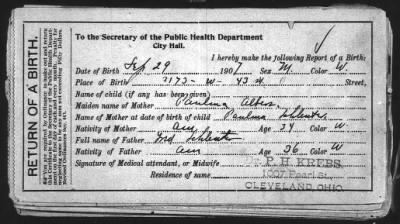 RETURN OF A BIRTH.
To the Secretary of the Public Health Department
City Hall.
I hereby make the following Report of a Birth:
Date of Birth Sep 29 1907 Sex M. Color W
Place of Birth 2173 - W - 43 st Street,
Name of child (if any has been given)
Maiden name of Mother Paulina Albers
Name of Mother at date of birth of child Paulina
Nativity of Mother Am Age 34 Color W
Full name of Father Fred
Nativity of Father am Age 36 Color W
Signature of Medical attendant, or Midwife P. H. KREBS,
Residence of same, 1007 Pearl St.
CLEVELAND, OHIO.